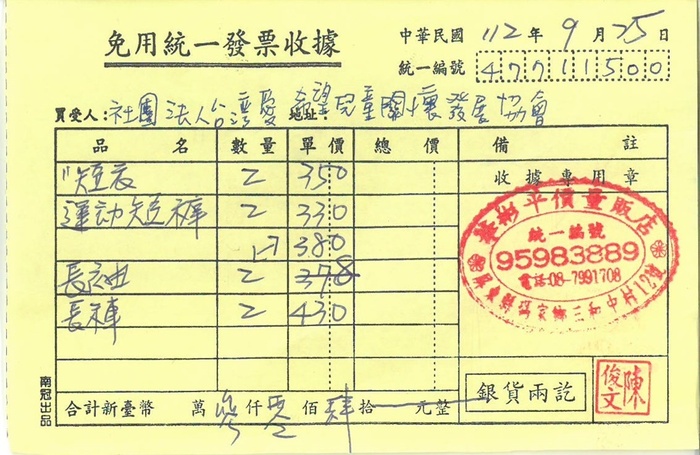 免用統一發票收據
中華民國 112年 9月 25日
統一編號 47711500
買受人：社團法人台灣愛 地址：希望兒童關懷發展協會
品名 數量 單價 總價 備註
收據專用章
短衣 2 350
運動短褲 2 330
380
2 378
長褲 2 430
彬平價量販店
統一編號
95983889
電話08-7991708
屏東縣瑪家鄉三和中村12號
合計新臺幣 萬 參仟 零佰 肆拾 元整
銀貨兩訖
陳俊文
南冠出品